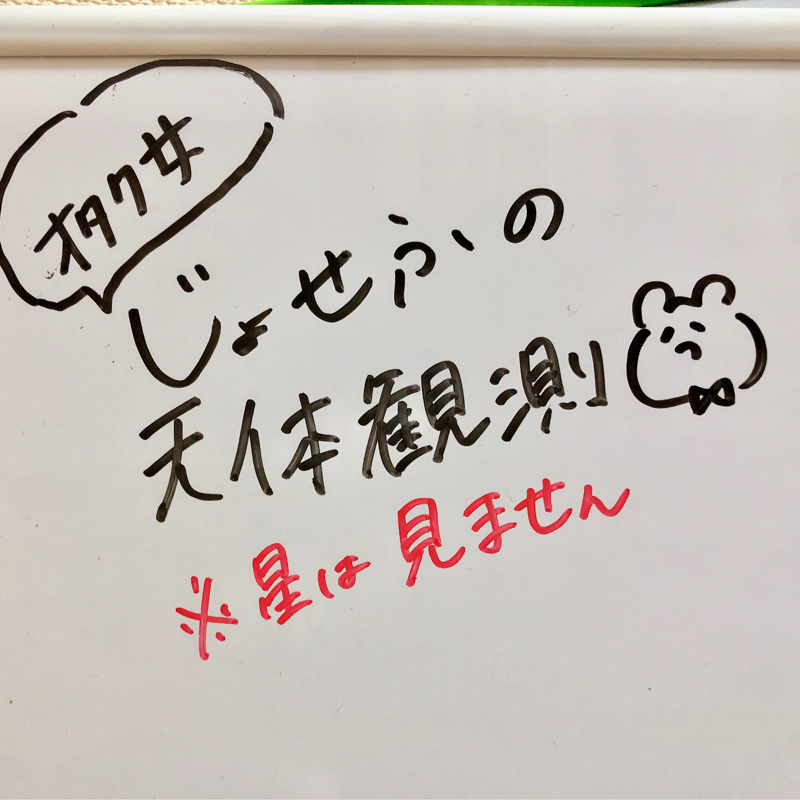 オタク女
じょせふの
天体観測
※星は見ません